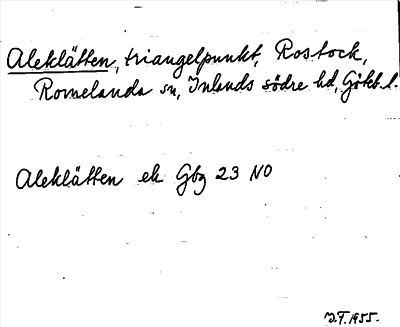 Aleklätten, triangelpunkt, Rostock,
Romelanda sn, Inlands södre hd, Göteb. l.
Aleklätten ek Gbg 23 NO
J.F. 1955.